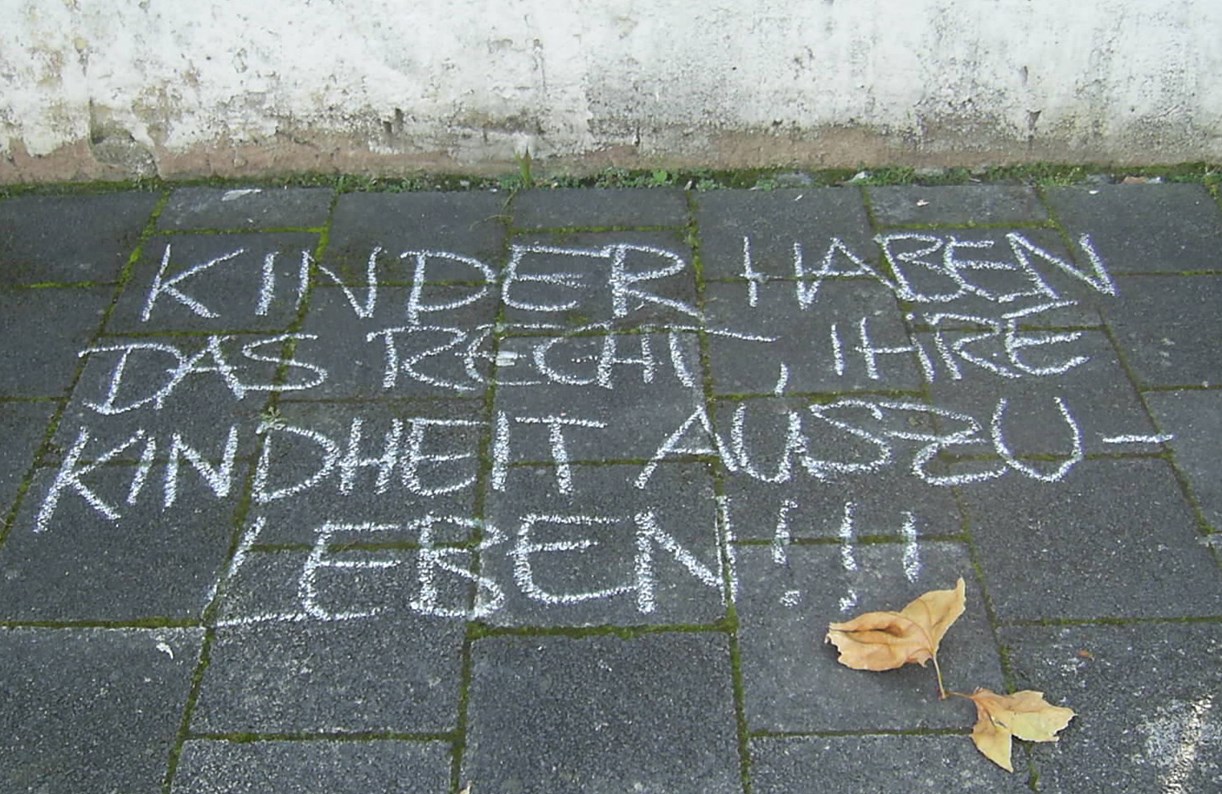 KINDER HABEN
DAS RECHT, IHRE
KINDHEIT AUSZU-
LEBEN!!!